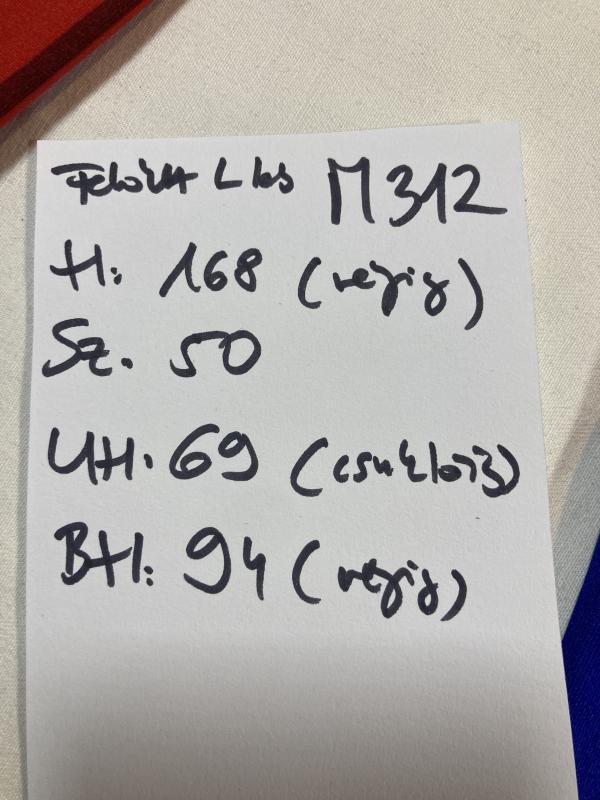 M312
H: 168 (végig)
Sz. 50
UH: 69 (csuklóig)
BH: 94 (végig)